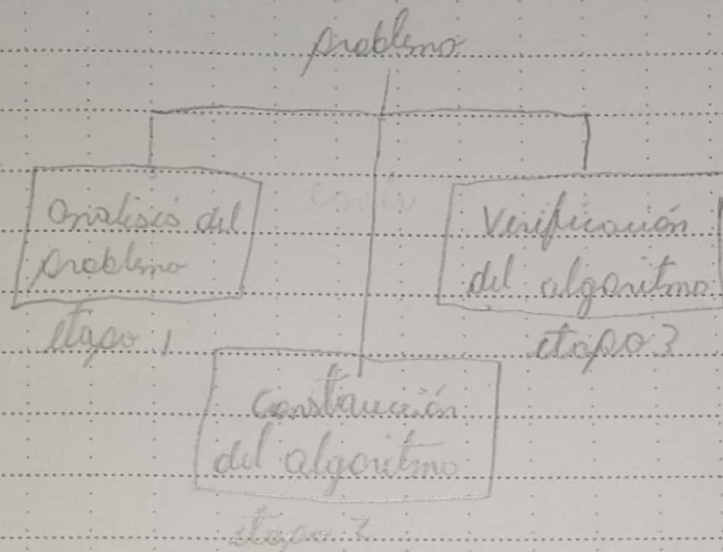 problema
Analisis del
problema
etapa 1
Verificación
del algoritmo
etapa 3
Construcción
del algoritmo
etapa 2